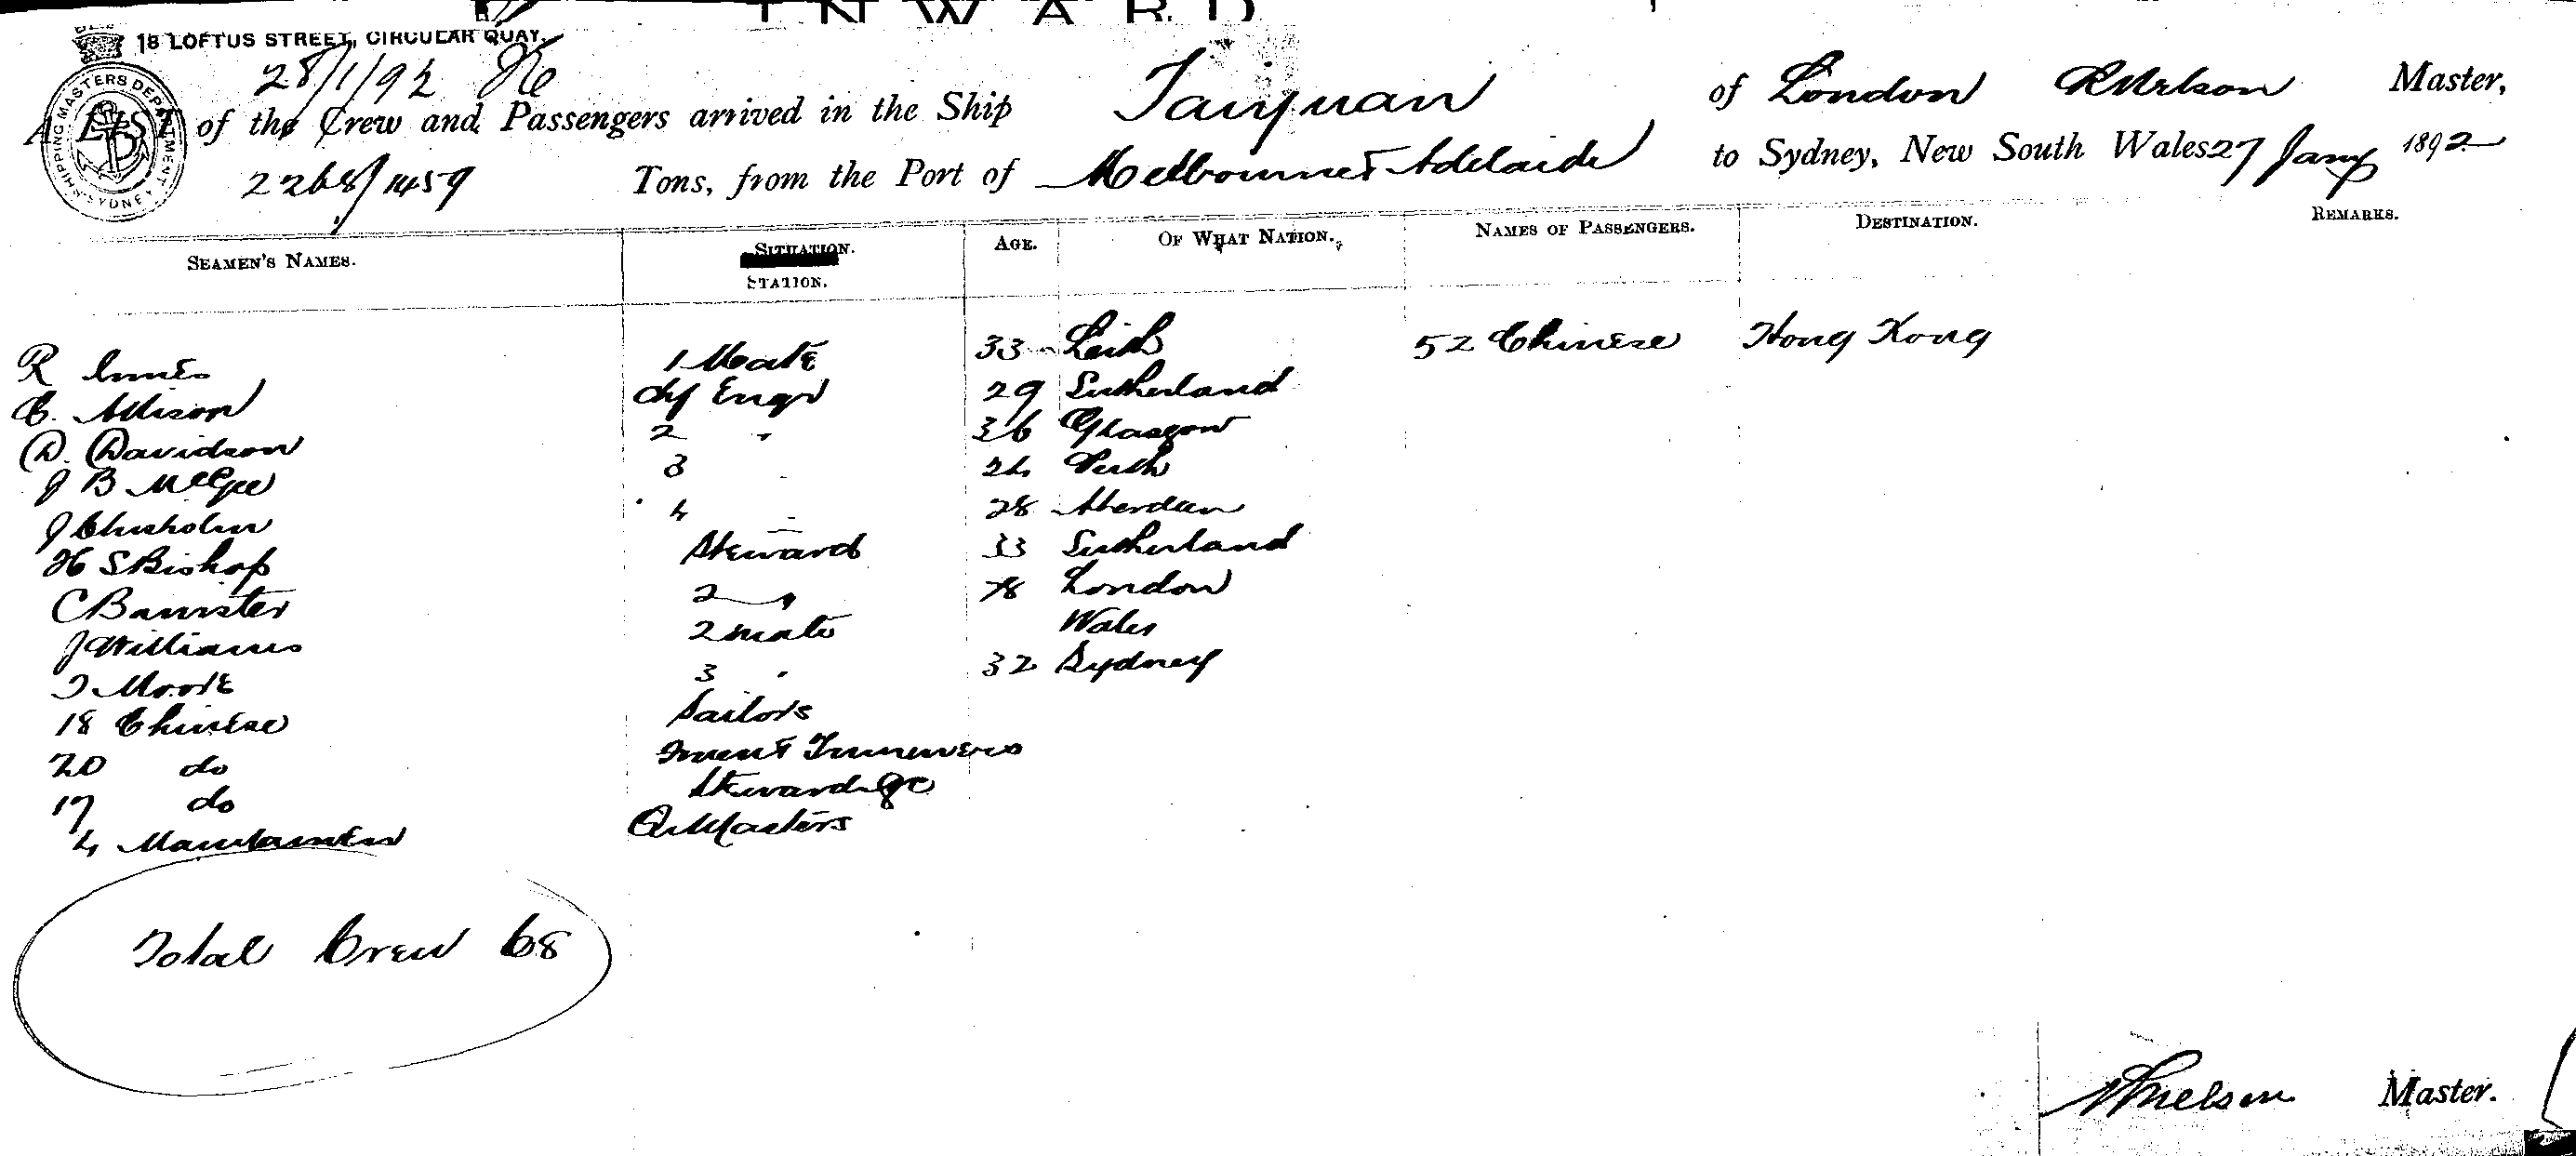 INWARD
18 LOFTUS STREET, CIRCULAR QUAY.
SHIPPING MASTERS DEPARTMENT SYDNEY
28/1/92
A LIST of the Crew and Passengers arrived in the Ship Taiyuan of London R Nelson Master,
2268/1459 Tons, from the Port of Melbourne & Adelaide to Sydney, New South Wales 27 Jany 1892
SEAMEN'S NAMES. SITUATION. STATION. AGE. OF WHAT NATION. NAMES OF PASSENGERS. DESTINATION. REMARKS.
R Innes 1 Mate 33 Leith 52 Chinese Hong Kong
C. Allison Chf Engr 29 Sutherland
D. Davidson 2 " 36 Glasgow
J B McGee 3 " 24 Perth
J Chisholm 4 " 28 Aberdeen
H S Bishop Steward 33 Sutherland
C Bannister 2 " 28 London
J Williams 2 mate Wales
T Moore 3 " 32 Sydney
18 Chinese Sailors
20 do Firemen & Trimmers
17 do Stewards &c
4 Qr Masters
Total Crew 68
Nelson Master.